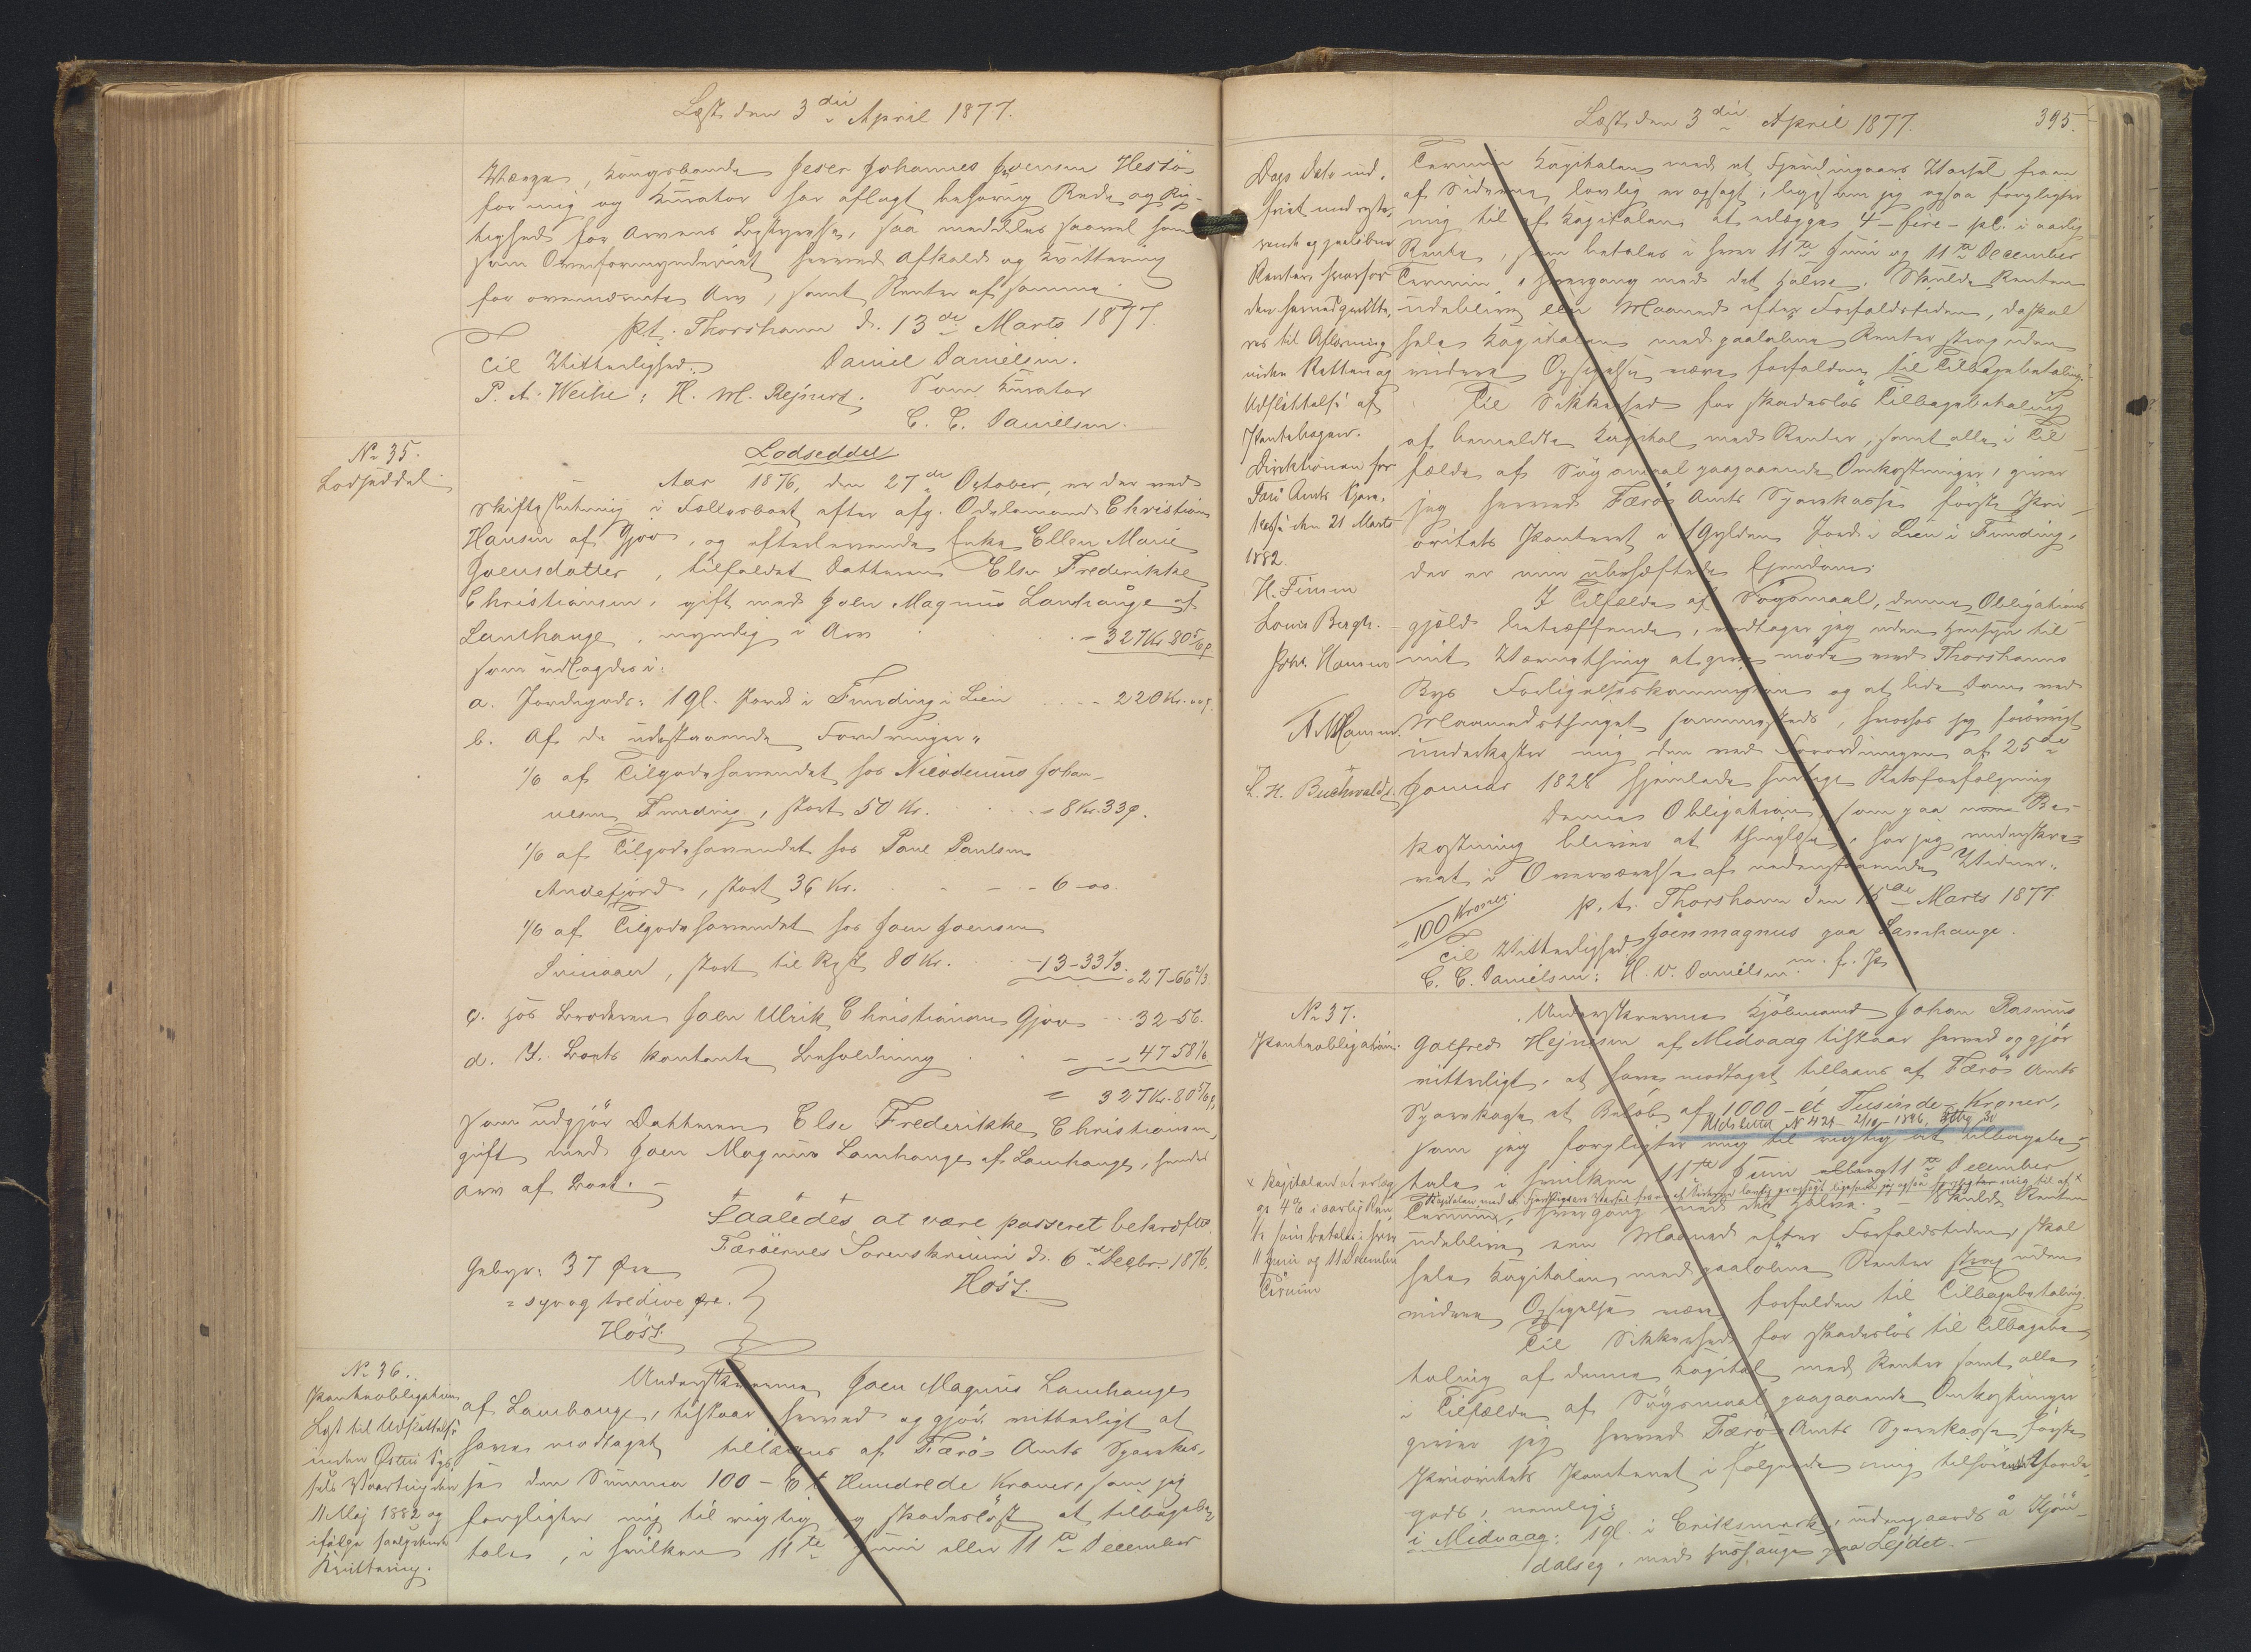 Læst den 3die April 1877.
Værge, Kongsbonde Peter Johannes Joensen Hestø
for mig og Kurator har aflagt behørig Rede og Rig-
tighed for Arvens Bestyrelse, saa meddeles saavel ham
som Overformynderiet herved Afkald og Kvittering
for ovennævnte Arv, samt Renter af samme.
pt. Thorshavn d. 13de Marts 1877.
Til Vitterlighed: Daniel Danielsen.
P. A. Weihe; H. M. Rejnert. Som Kurator
C. C. Danielsen.
No 35.
Lodseddel
Lodseddel
Aar 1876, den 27de October, er der ved
Skifteslutning i Fællesboet efter afg. Odelsmand Christian
Hansen af Gjov, og efterlevende Enke Ellen Marie
Joensdatter, tilfaldet Datteren Else Frederikke
Christiansen, gift med Joen Magnus Lamhauge af
Lamhauge, myndig i Arv - 327 Kr. 80 5/6 ø.
som udlagdes i:
a. Jordegods: 1 gl. Jord i Funding i Lien - - - 220 Kr. 00 ø.
b. Af de udestaaende Fordringer,
1/6 af Tilgodehavendet hos Nicodemus Johan-
nesen Funding, stort 50 Kr. - 8 Kr. 33 ø.
1/6 af Tilgodehavendet hos Poul Poulsen
Andefjord, stort 36 Kr. - - - 6 - 00.
1/6 af Tilgodehavendet hos Joen Joensen
Svinaaer, stort til Rest 80 Kr. - 13 - 33 1/3. = 27 - 66 2/3
c. hos Broderen Joen Ulrik Christiansen Gjov - - 32 - 56.
d. I Boets kontante Beholdning - - - 47 58 1/6
= 327 Kr. 80 5/6 ø.
som udgjør Datteren Else Frederikke Christiansen,
gift med Joen Magnus Lamhauge af Lamhauge, hendes
Arv af Boet. -
Saaledes at være passeret bekræftes.
Færøernes Sorenskriveri d. 6te Decbr. 1876.
Gebyr: 37 Øre Høst.
= syv og tredive Øre.
Høst
No 36.
Panteobligation
Læst til Udslettelse
inden Østerø Sys-
sels Vaarting den
11 Maj 1882 og
ifølge paategnede
Kvittering.
Underskrevne Joen Magnus Lamhauge
af Lamhauge, tilstaar herved og gjør vitterligt at
have modtaget tillaans af Færø Amts Sparekas-
se den Summa 100 - Et Hundrede Kroner, som jeg
forpligter mig til rigtig og skadesløst at tilbagebe-
tale, i hvilken 11te Juni eller 11te December
Læst den 3die April 1877. 395.
Dags Dato ind-
friet med reste-
rende og paaløbne
Renter hvorfor
den herved qvitte-
res til Aflæsning
inden Retten og
Udslettelse af
Pantebogen.
Direktionen for
Færø Amts Spare-
kasse den 21 Marts
1882.
H. Finsen
Louis Bergh.
Johs. Hansen
A. Hansen
L. H. Buchwaldt.
Termin Kapitalen med et Fjerdingaars Varsel fra en
af Siderne lovlig er opsagt, ligesom jeg ogsaa forpligter
mig til af Kapitalen at erlægge 4 - fire - pCt. i aarlig
Rente, som betales i hver 11te Juni og 11te December
Termin, hvergang med det halve. Skulde Renten
udeblive een Maaned efter Forfaldstiden, da skal
hele Kapitalen med paaløbne Renter strax uden
videre Opsigelse være forfalden til Tilbagebetaling.
Til Sikkerhed for skadesløs Tilbagebetaling
af bemeldte Kapital med Renter, samt alle i Til-
fælde af Søgsmaal paagaaende Omkostninger, giver
jeg herved Færø Amts Sparekasse første Pri-
oritets Panteret i 1 Gylden Jord i Lien i Funding,
der er min ubehæftede Ejendom.
I Tilfælde af Søgsmaal, denne Obligations
gjæld betræffende, vedtager jeg uden Hensyn til
mit Værnething at give møde ved Thorshavns
Byes Forligelseskommission og at lide Dom ved
Maanedsthinget sammesteds, hvorhos jeg forøvrigt
underkaster mig den ved Forordningen af 25de
Januar 1828 hjemlede hurtige Retsforfølgning
Denne Obligation, som paa min Be-
kostning bliver at thinglæse, har jeg underskre-
vet i Overværelse af nedenstaaende Vidner.
p. t. Thorshavn den 15de Marts 1877
= 100 Kroner.
Joenmagnus paa Lamhauge.
Til Vitterlighed: m. f. P.
C. C. Danielsen; H. V. Danielsen
No 37.
Panteobligation.
Underskrevne Kjøbmand Johan Rasmus
Gotfred Hejnesen af Midvaag tilstaar herved og gjør
vitterligt, at have modtaget tillaans af Færøs Amts
Sparekasse et Beløb af 1000 - ét Tusinde - Kroner,
Udslettet N 424 - 2/10 - 1896,
som jeg forpligter mig til rigtig at tilbagebe-
tale i hvilken 11te Juni eller 11te December
Kapitalen med et Fjerdingaars Varsel fra en af Siderne lovlig er opsagt ligesom jeg ogsaa forpligter mig til af x
x Kapitalen at erlæg-
ge 4% i aarlig Ren-
te som betales i hver
11 Juni og 11 December
Termin
Termin, hvergang med det halve. - Skulde Renten
udeblive een Maaned efter Forfaldstiden, skal
hele Kapitalen, med paaløbne Renter strax uden
videre Opsigelse være forfalden til Tilbagebetaling.
Til Sikkerhed for skadesløs til Tilbagebe-
taling af denne Kapital med Renter samt alle
i Tilfælde af Søgsmaal paagaaende Omkostninger
giver jeg herved Færøs Amts Sparekasse første
Prioritets Panteret i følgende mig tilhørende Jorde-
gods, nemlig:
i Midvaag: 1 gl. i Eriksmark, indengaards å Kjøn-
dalseg, med Huushauge paa Lejdet. -